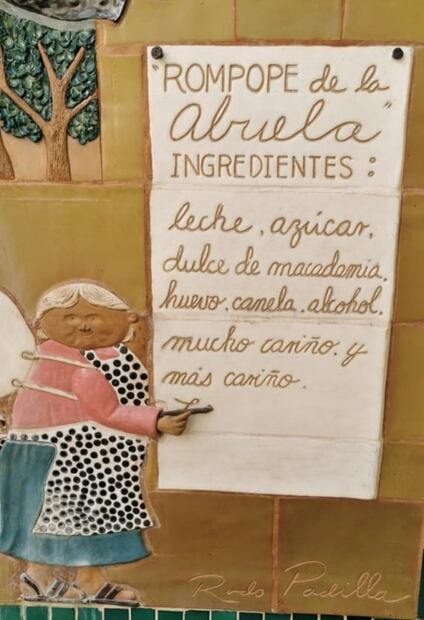 "ROMPOPE de la
Abuela"
INGREDIENTES:
leche, azúcar,
dulce de macadamia,
huevo, canela, alcohol,
mucho cariño y
más cariño.
Rodo Padilla